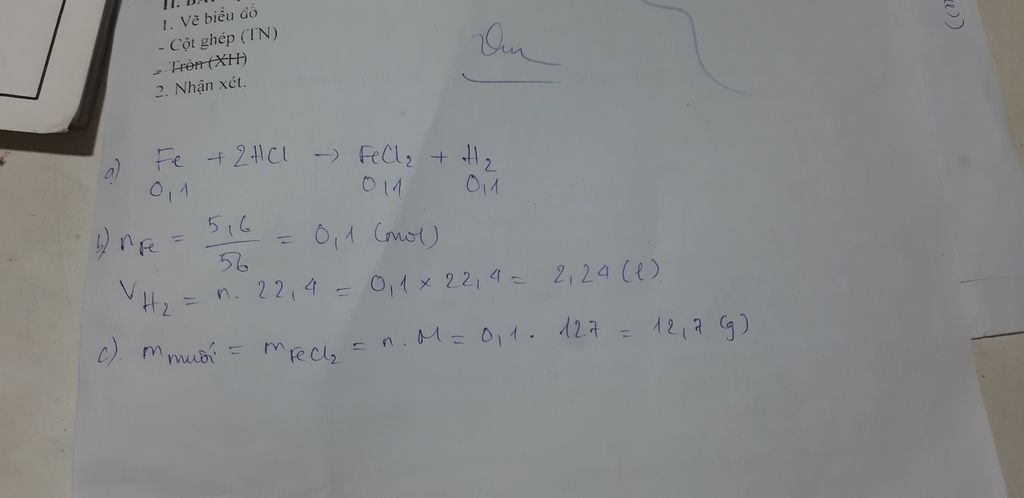 1. Vẽ biểu đồ
- Cột ghép (TN)
- Tròn (XH)
2. Nhận xét.
a) Fe + 2HCl → FeCl2 + H2
0,1 0,1 0,1
b) nFe = 5,6/56 = 0,1 (mol)
VH2 = n. 22,4 = 0,1 x 22,4 = 2,24 (l).
c). mmuối = mFeCl2 = n. M = 0,1. 127 = 12,7 (g)